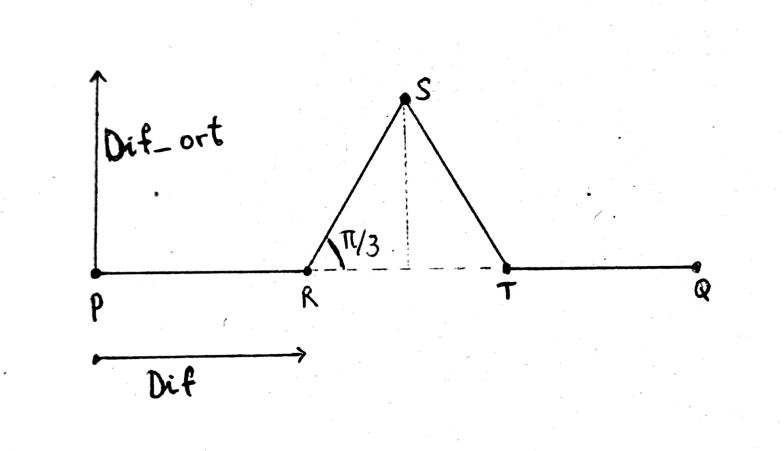 S
Dif_ort
π/3
P
R
T
Q
Dif